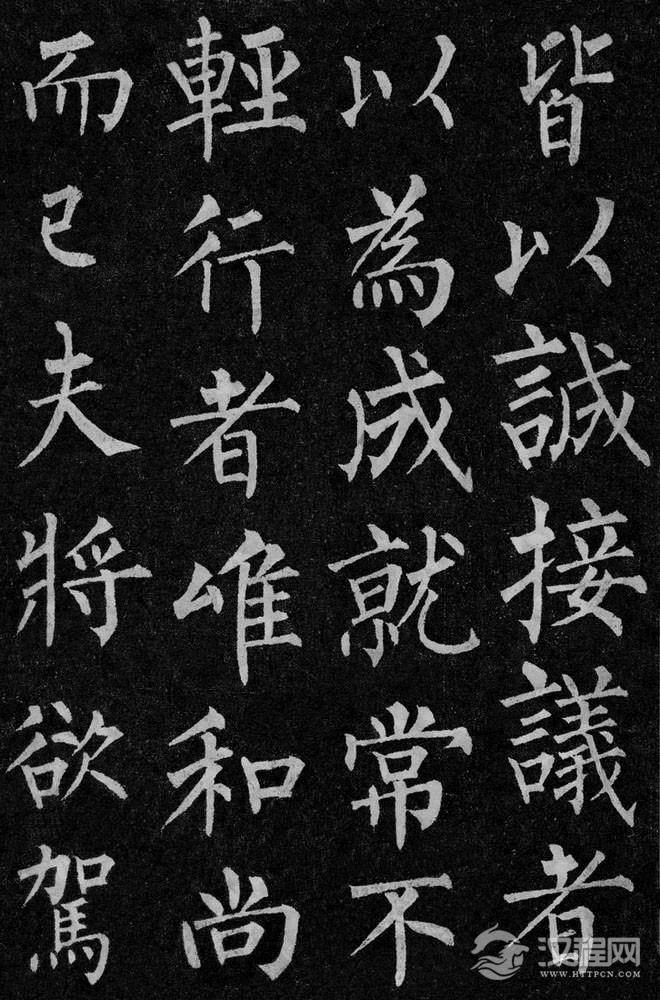 皆以誠接議者
以為成就常不
輕行者唯和尚
而已夫將欲駕
汉程网
WWW.HTTPCN.COM